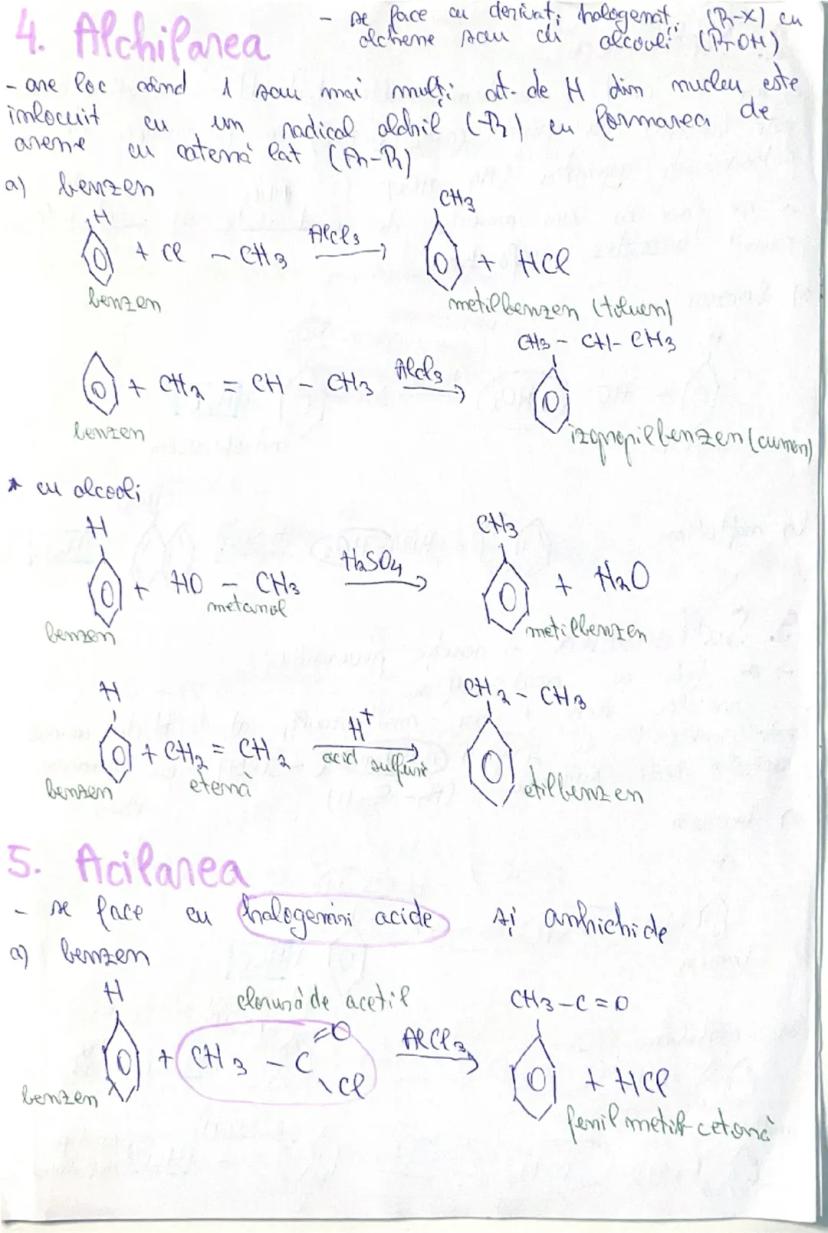 4. Alchilarea
- se face cu derivați halogenați (R-X) cu
alchene sau cu alcooli (R-OH)
- are loc când 1 sau mai mulți at. de H din nucleu este
înlocuit cu un radical alchil (-R) cu formarea de
arene cu catenă lat (Ar-R)
a) benzen
H CH3
+ Cl - CH3 AlCl3 → + HCl
benzen metilbenzen (toluen)
CH3 - CH - CH3
+ CH2 = CH - CH3 AlCl3 →
benzen izopropilbenzen (cumen)
* cu alcooli
H CH3
+ HO - CH3 H2SO4 → + H2O
metanol
benzen metilbenzen
H CH2 - CH3
+ CH2 = CH2 H+ →
acid sulfuric
benzen etenă etilbenzen
5. Acilarea
- se face cu halogenini acide și anhichide
a) benzen
H clorură de acetil CH3 - C = O
+ CH3 - C =O Cl AlCl3 → + HCl
benzen fenil metil-cetonă